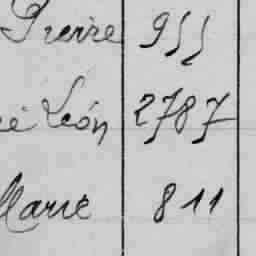 Pierre 955
é León 2787
Marie 811